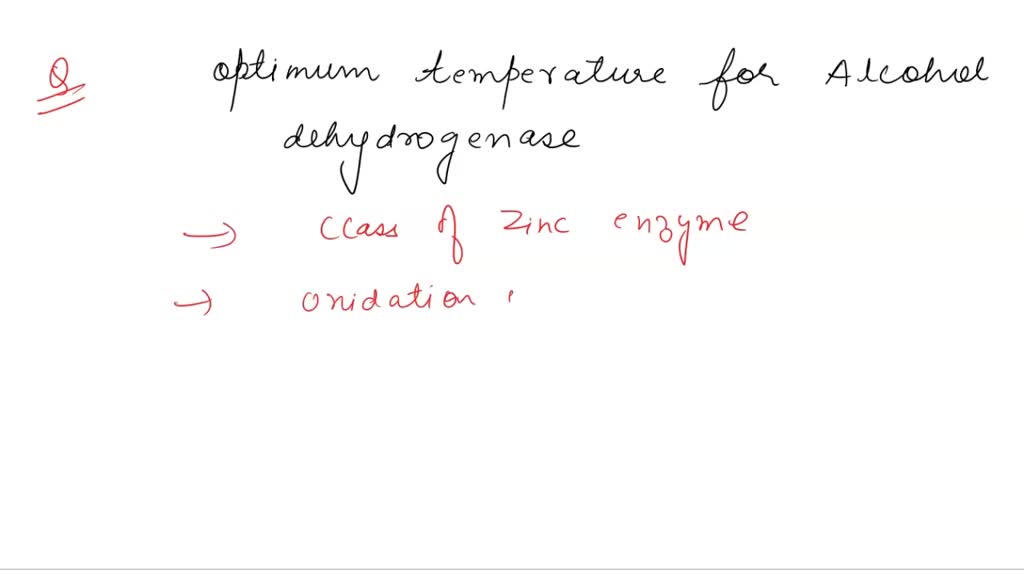 Q optimum temperature for Alcohol
dehydrogenase
→ Class of Zinc enzyme
→ oxidation